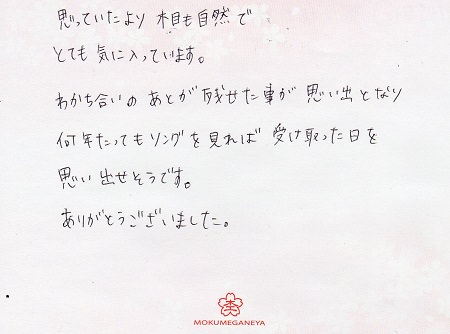 思っていたより 木目も自然で
とても 気に入っています。
わかち合いの あとが 残せた事が 思い出となり
何年たってもリングを見れば 受け取った日を
思い出せそうです。
ありがとうございました。
MOKUMEGANEYA